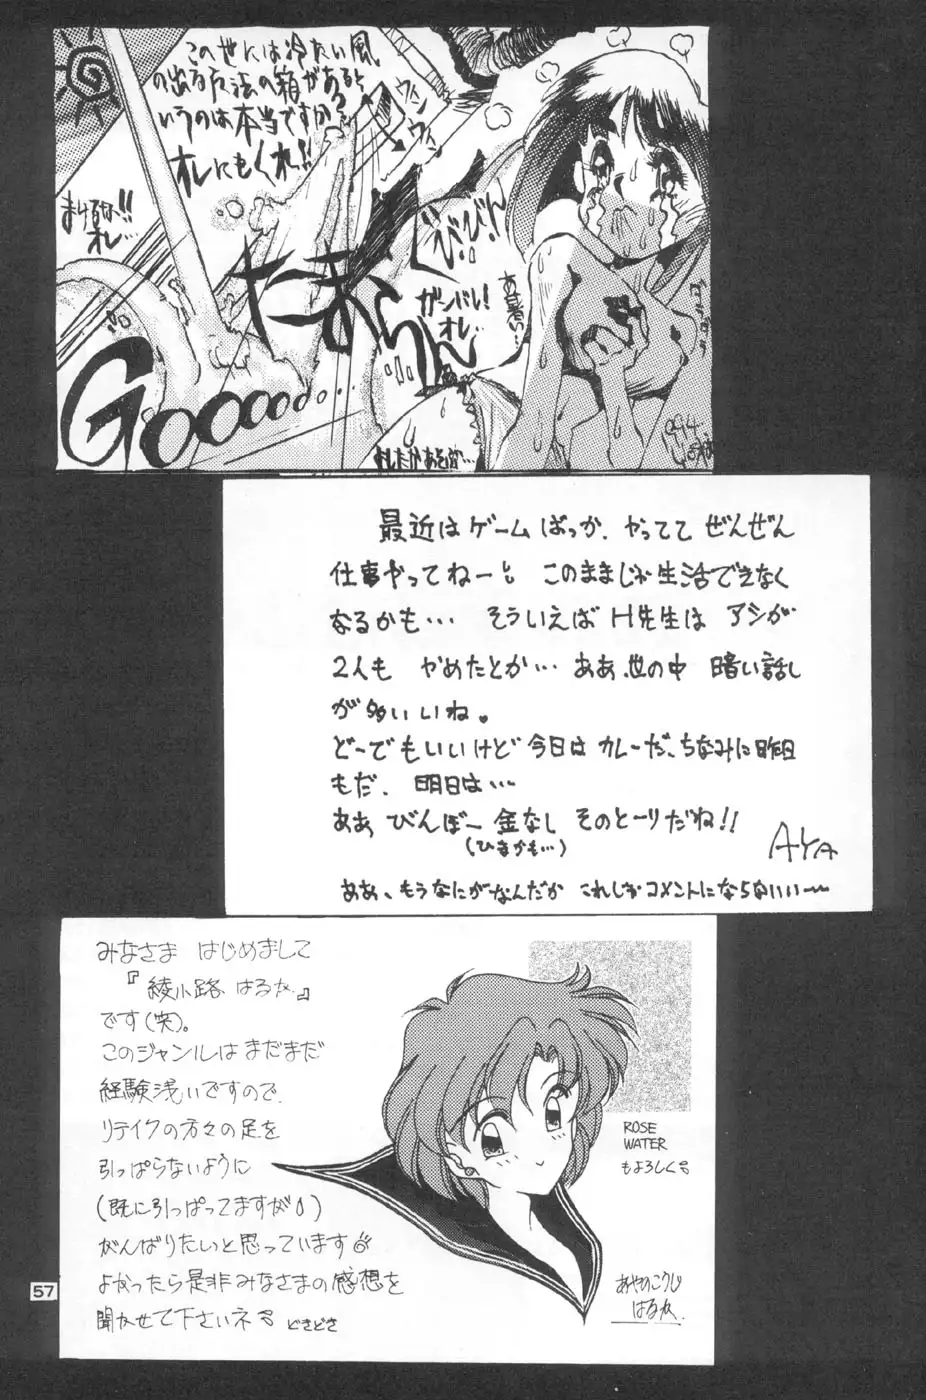 この世には冷たい風
の出る方法の箱があると
いうのは本当ですか?
オレにもくれ!!
まけるな!!
オレ…
ウィン
ウィン
びびびん
ガンバレ!
オレ…
あ暑い…
たまらん
Goooood…
最近はゲームばっか、やってて ぜんぜん
仕事やってねーと このままじゃ生活できなく
なるかも… そういえば H先生は アシが
2人も やめたとか… ああ、世の中 暗い話し
が多いいね。
ど〜でもいいけど 今日は カレーだ、ちなみに昨日
もだ、 明日は…
ああ びんぼー 金なし そのとーりだね!!
(ひまかも…)
AYA
ああ、もうなにがなんだか これじゃコメントにならないい〜
みなさま はじめまして
『綾小路 はるか』
です(笑)。
このジャンルは まだまだ
経験浅いですので、
リテイクの方々の足を
引っぱらないように
(既に引っぱってますが)
がんばりたいと思っています
よかったら是非みなさまの感想を
聞かせて下さいネ どきどき
ROSE
WATER
もよろしく
あやのこうじ
はるか
57